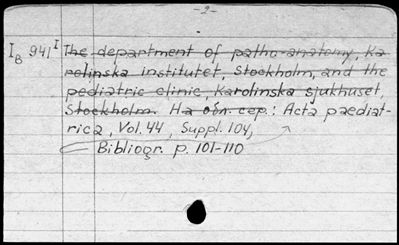 -2-
I_B 941^I The department of patho-anatomy, Ka
rolinska institutet, Stockholm, and the
pediatric clinic, Karolinska sjukhuset,
Stockholm. На обл. сер.: Acta paediat-
rica, Vol. 44, Suppl. 104,
Bibliogr. p. 101-110